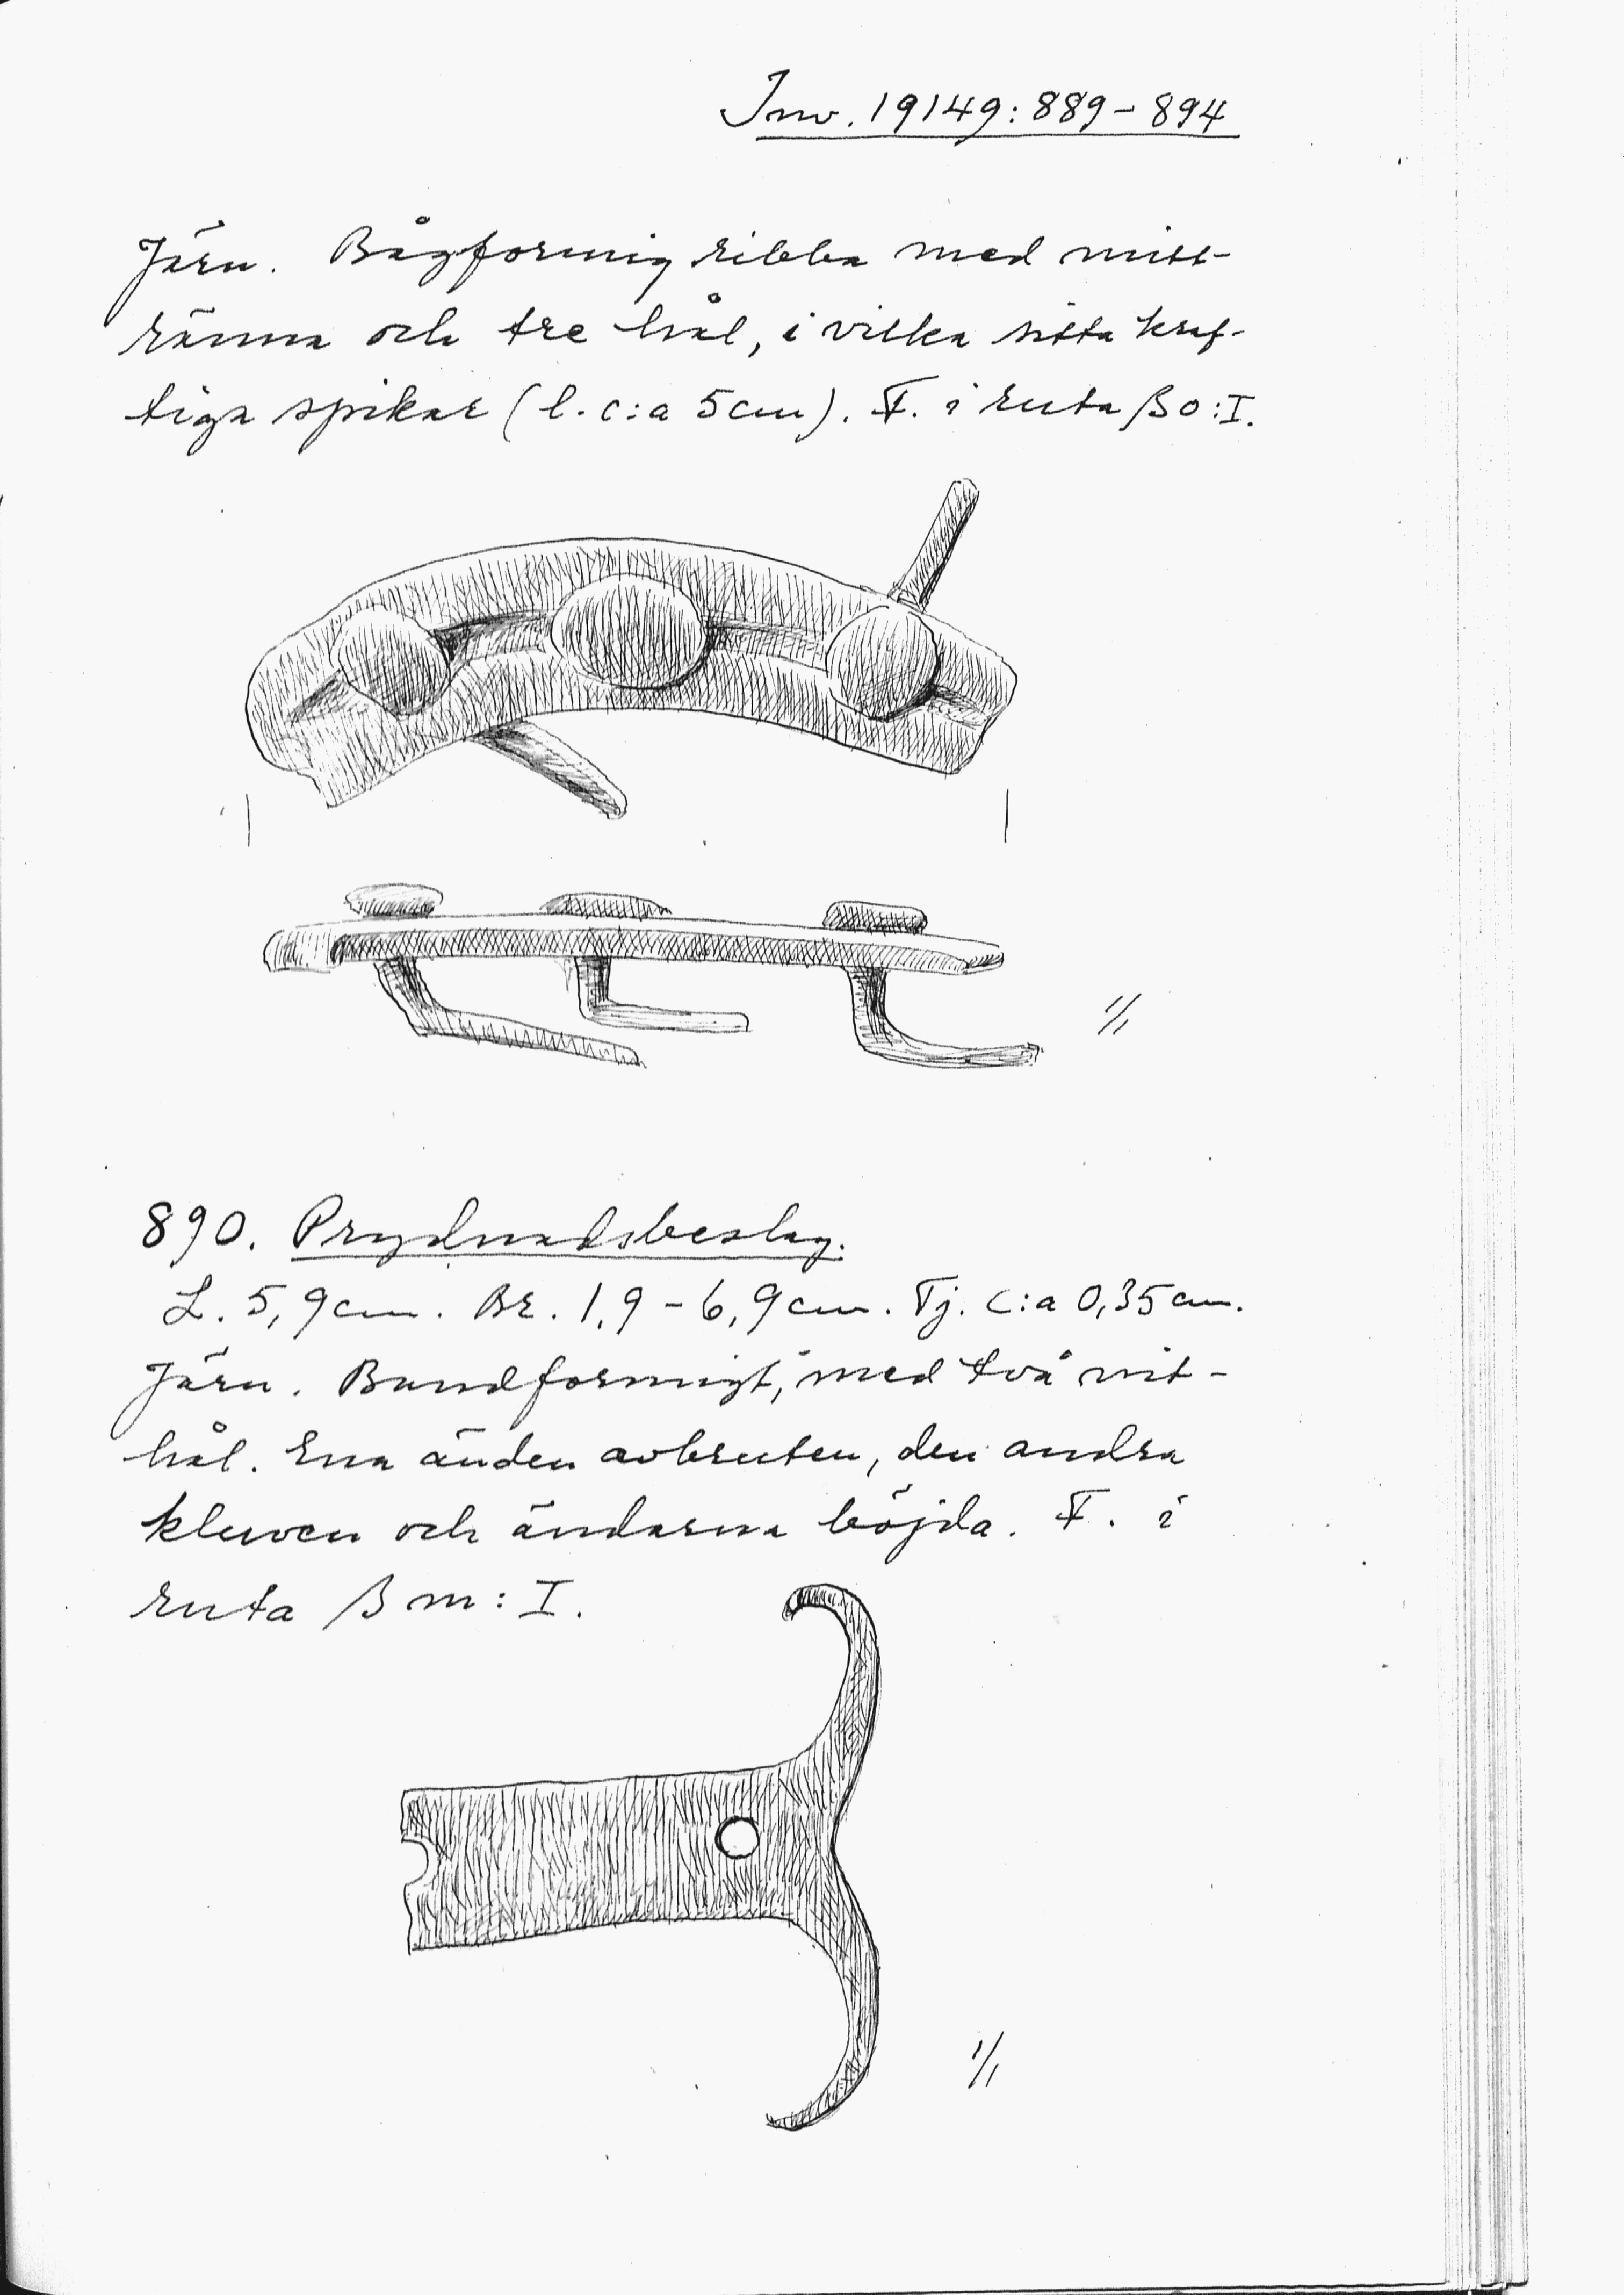 Inv. 19149:889-894
Järn. Bågformig ribba med mitt-
ränna och tre hål, i vilka sitta kraf-
tiga spikar (l. c:a 5cm). F. i ruta βo:I.
1/1
890. Prydnadsbeslag.
L. 5,9cm. Br. 1,9-6,9cm. Tj. c:a 0,35cm.
Järn. Bandformigt, med två nit-
hål. Ena änden avbruten, den andra
kluven och ändarna böjda. F. i
ruta βm:I.
1/1